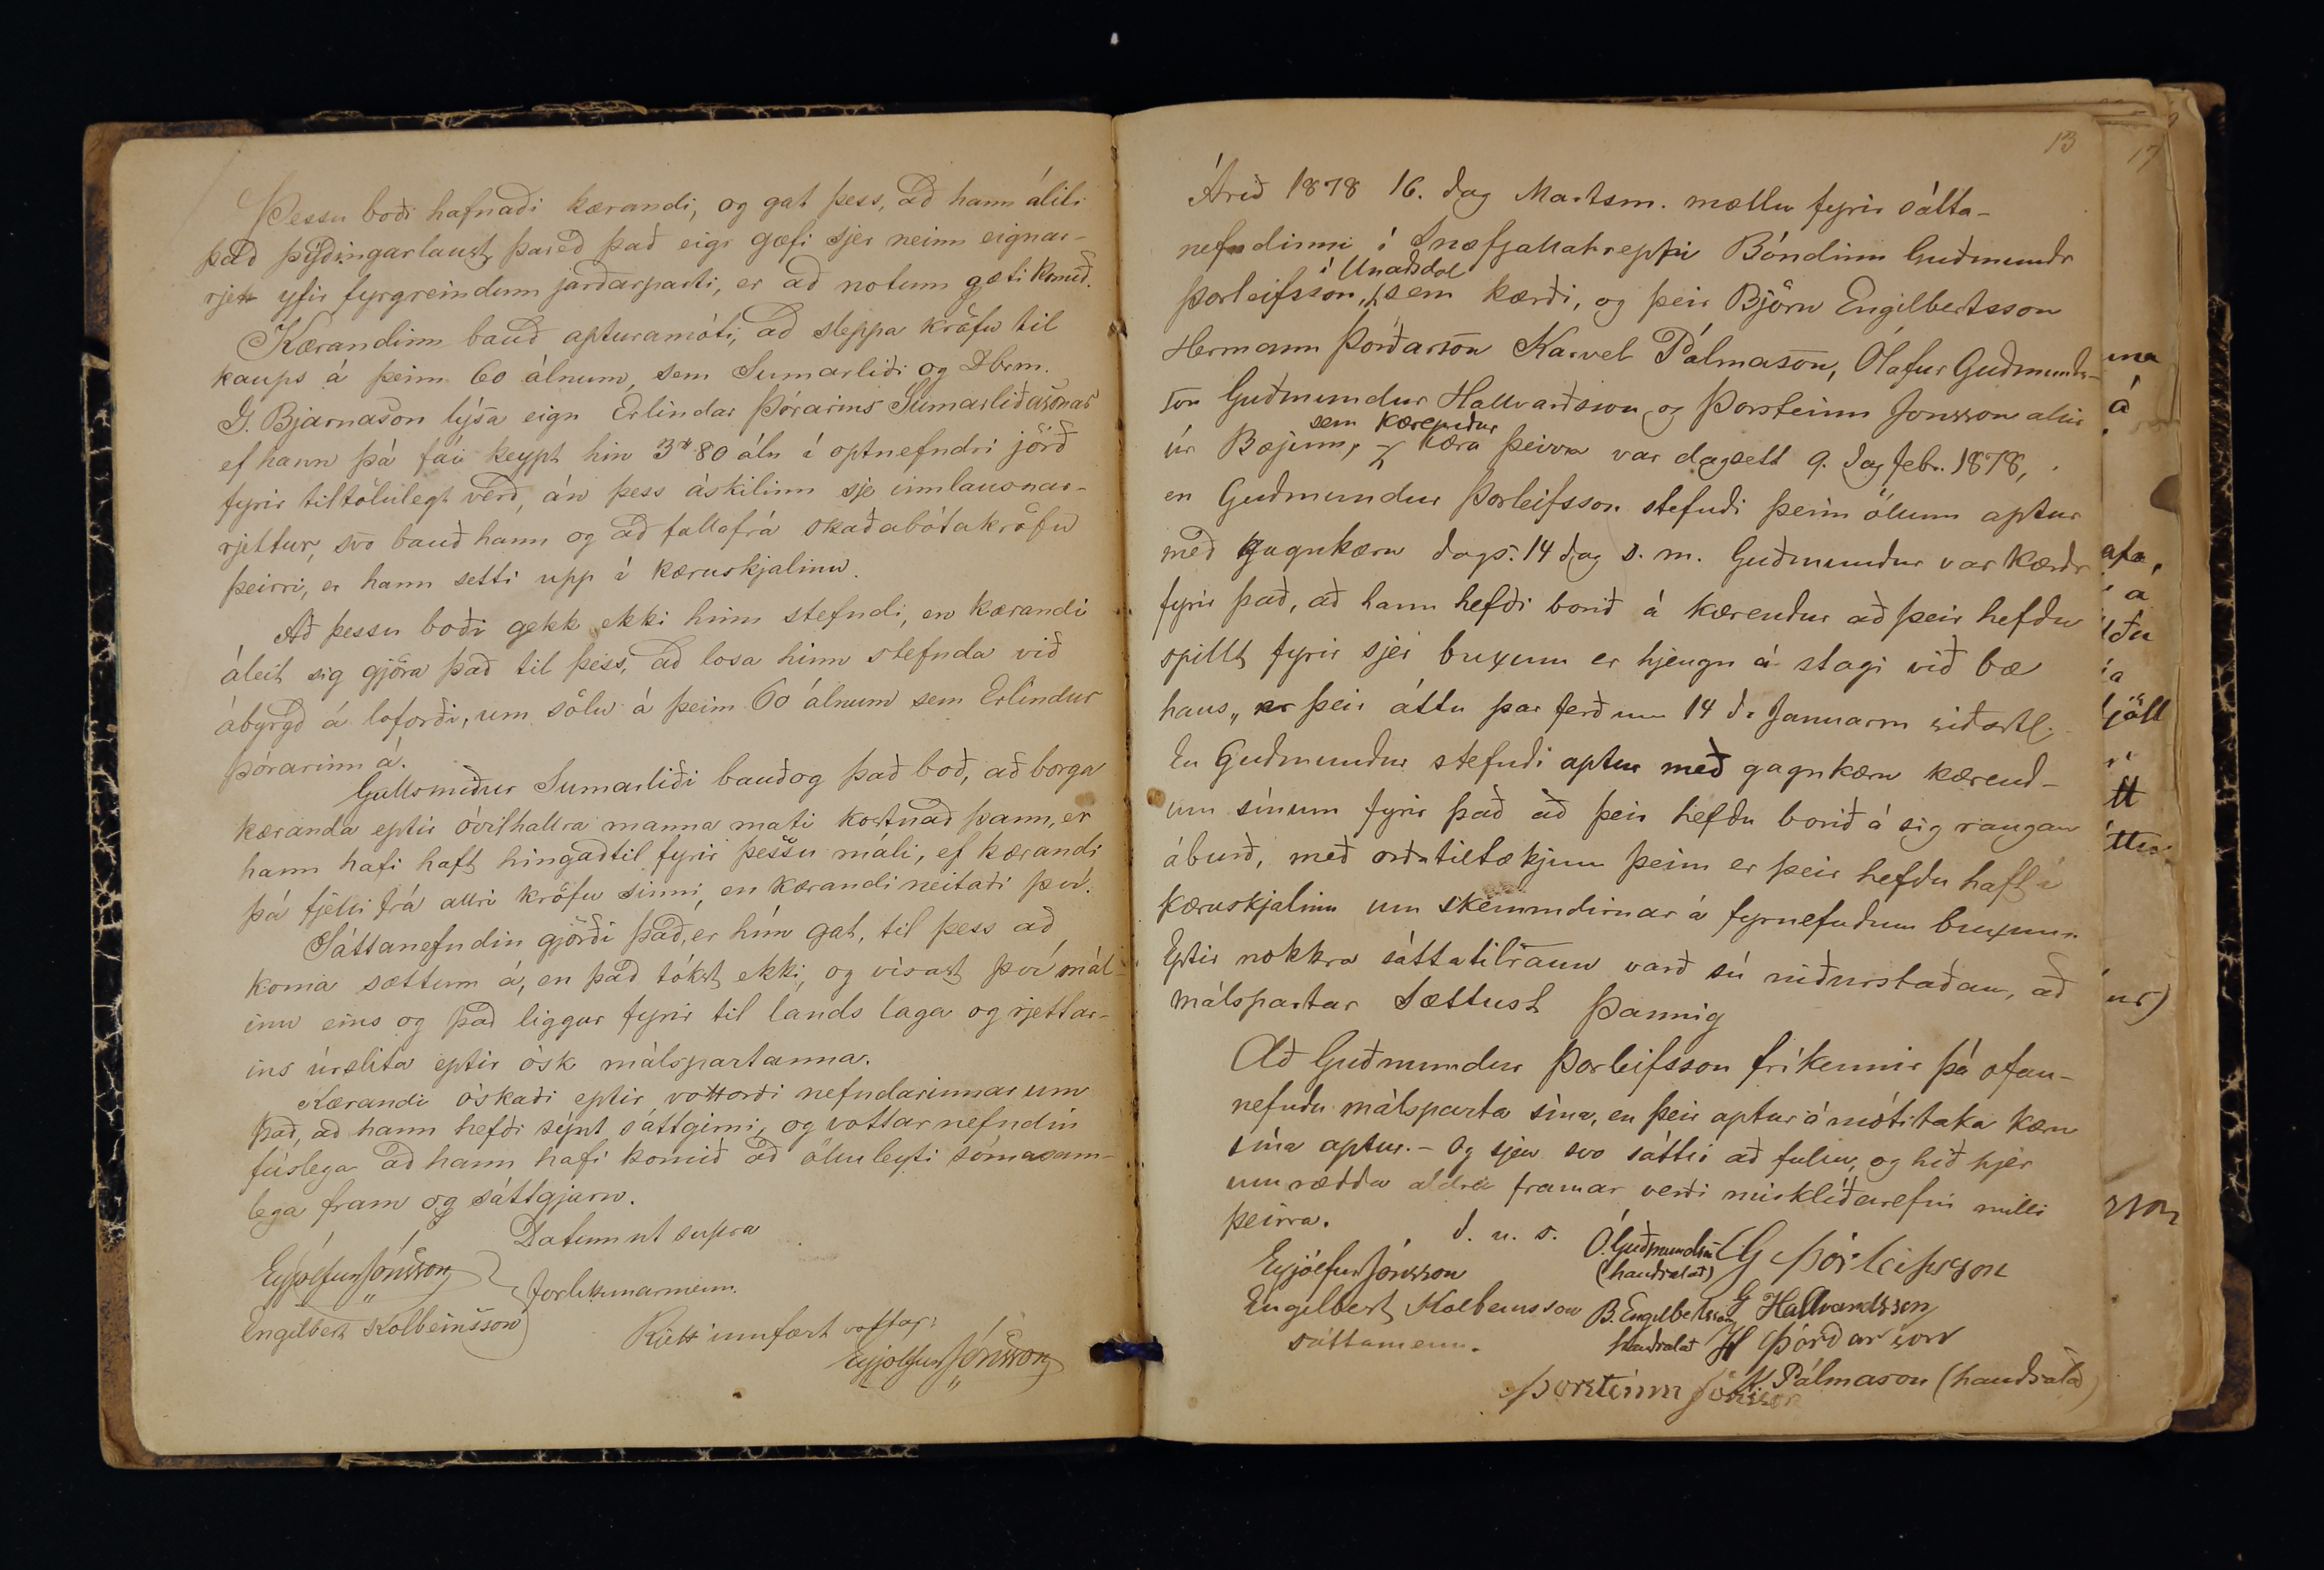 Þessu boði hafnaði kærandi, og gat þess, að hann áliti
það þýðingarlaust, þareð það eigi gæfi sjer neinn eignar-
rjett yfir fyrgreindum jarðarparti, er að notum gæti komið.
Kærandinn bauð apturamóti, að sleppa kröfu til
kaups á þeim 60 álnum, sem Sumarliði og Dbrm.
G. Bjarnason lýsa eign Erlindar Þórarins Sumarliðasonar
ef hann þá fái keypt hin 3 80 áln í optnefndri jörð
fyrir tiltölulegt verð, án þess áskilinn sje innlausnar-
rjettur, svo bauð hann og að falla frá skaðabótakröfu
þeirri, er hann setti upp í kæruskjalinu.
Að þessu boði gekk ekki hinn stefndi, en kærandi
áleit sig gjöra það til þess, að losa hinn stefnda við
ábyrgð á loforði, um sölu á þeim 60 álnum sem Erlindur
Þórarinn á.
Gullsmiður Sumarliði bauð og það boð, að borga
kæranda eptir óvilhallra manna mati kostnað þann, er
hann hafi haft hingaðtil fyrir þessu máli, ef kærandi
þá fjelli frá allri kröfu sinni, en kærandi neitaði því.
Sáttanefndin gjörði það, er hún gat, til þess að
koma sættum á, en það tókst ekki, og vísast því mál-
inu eins og það liggur fyrir til lands laga og rjettar-
ins úrslita eptir ósk málspartanna.
Kærandi óskaði eptir vottorði nefndarinnar um
það, að hann hefði sýnt sáttgirni, og vottar nefndin
fúslega að hann hafi komið að öllu leyti sómasam-
lega fram og sáttgjarn.
Datum ut supra
Eyjólfur Jónsson
Forlikunarmenn.
Engilbert Kolbeinsson
Rjett innfært vottar:
Eyjolfur Jónsson
13
17
Árið 1878 16. dag Martsm. mættu fyrir sátta-
nefndinni í Snæfjallahreppi Bóndinn Guðmundr
í Unaðsdal
Þorleifsson, sem kærði, og þeir Björn Engilbertsson
Hermann Þórðarson Karvel Pálmason, Ólafur Guðmunds-
son Guðmundur Hallvarðsson og Þorsteinn Jonsson allir
sem kærendur
úr Bæjum, kæra þeirra var dagsett 9. dag Febr. 1878,
en Guðmundur Þorleifsson stefndi þeim ölum aptur
með gagnkæru dags. 14 dag s. m. Guðmundur var kærdr
fyrir það, að hann hefði borið á kærendur að þeir hefðu
spillt fyrir sjer buxum er hjengu á stagi við bæ
hans, er þeir áttu þar ferð um 14 d. Januarm siðastl.
En Guðmundur stefndi aptur með gagnkæru kærend-
um sínum fyrir það að þeir hefðu borið á sig rangan
áburð, með orðatiltækjum þeim er þeir hefðu haft í
kæruskjalinu um skemmdirnar á fyrnefndum buxum.
Eptir nokkra sáttatilraun varð sú niðurstaðan, að
málspartar sættust þannig
Að Guðmundur Þorleifsson fríkennir þá ofan-
nefndu málsparta sína, en þeir aptur á móti taka kæru
sína aptur. - Og sjeu svo sáttir að fullu, og hið hjer
um rædda aldrei framar verði misklíðarefni milli
þeirra.
d. u. s.
Eyjólfur Jónsson
Engilbert Kolbeinsson
sáttamenn.
Ó. Guðmundss
(handsalað)
G Þorleifsson
B. Engilbertsson
handsalað
G Hallvardsson
H Þórðarson
K Pálmason (handsalað)
Þorsteinn Jónsson